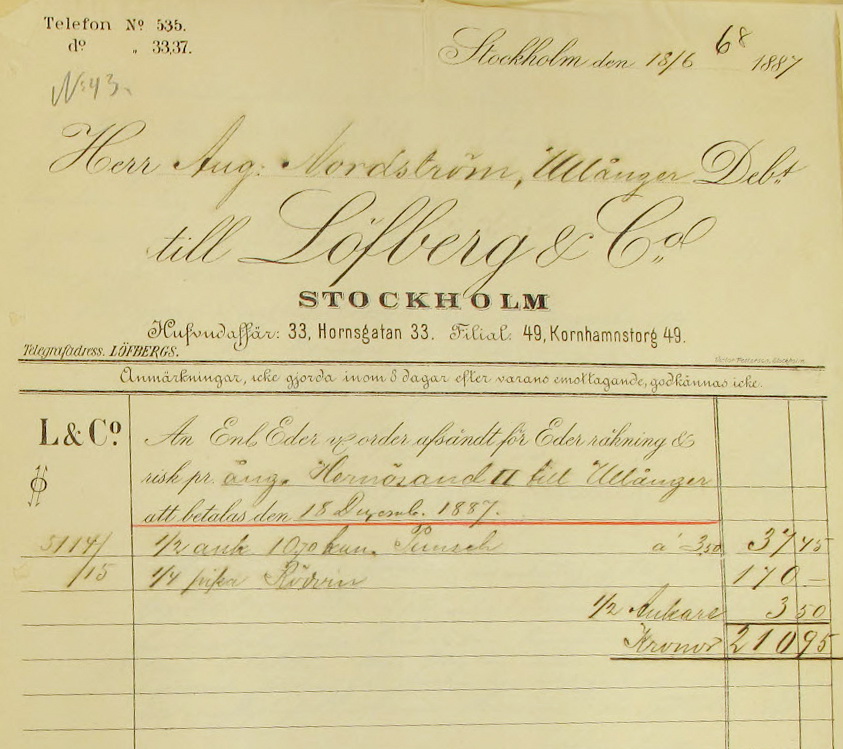 Telefon No 535.
do " 33,37.
68
Stockholm den 18/6 1887
No 43.
Herr Aug: Nordström, Ullånger Debt
till Löfberg & Co.
STOCKHOLM
Hufvudaffär: 33, Hornsgatan 33. Filial: 49, Kornhamnstorg 49.
Telegrafadress. LÖFBERGS.
Anmärkningar, icke gjorda inom 8 dagar efter varans emottagande, godkännas icke.
L & Co An Enl. Eder order afsändt för Eder räkning &
risk pr. ång. Hernösand II till Ullånger
att betalas den 18 Decemb. 1887.
5114/ 1/2 ank 10 70 kan. Punsch a' 3,50 37 45
/15 1/4 pipa Rödvin 170 —
1/2 Ankare 3 50
Kronor 210 95